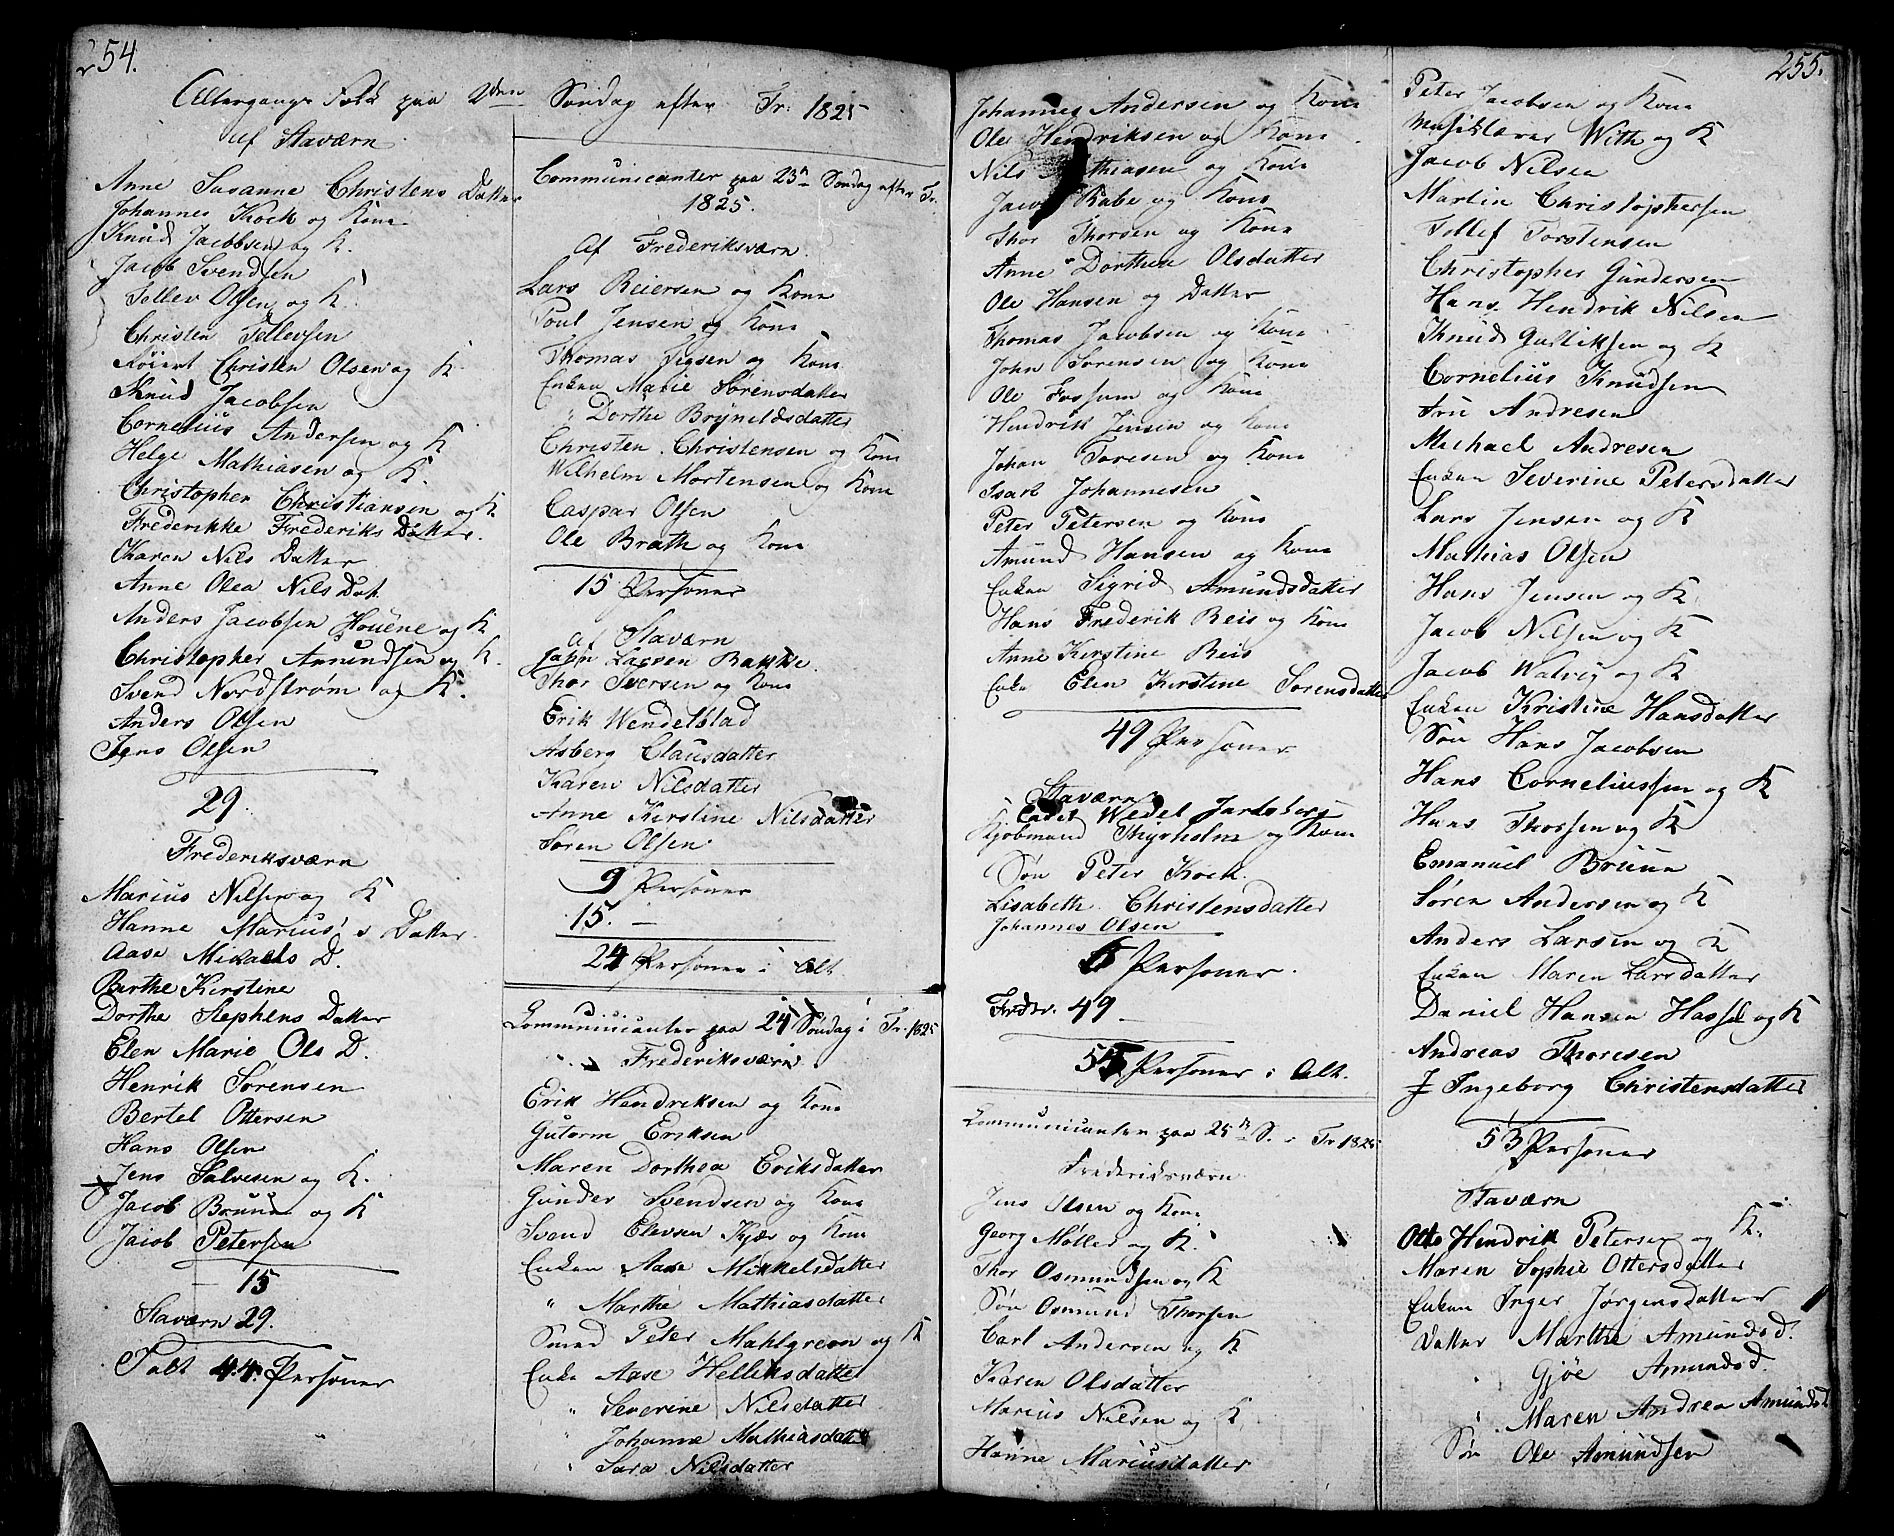 254.
Altergangs Folk paa 2den Søndag efter Tr. 1825
af Staværn
Anne Susanne Christens Datter
Johannes Kock og Kone
Knud Jacobsen og K.
Jacob Svendsen
Tellev Olsen og K.
Christen Tellevsen
Christen Olsen og K
Knud Jacobsen
Cornelius Andersen og K
Helge Mathiasen og K.
Christopher Christiansen og K.
Frederikke Frederiks Datter.
Karen Nils Datter
Anne Olea Nils Dat
Anders Jacobsen Houene og K
Christopher Amundsen og K.
Svend Nordstrøm og K.
Anders Olsen
Jens Olsen
29.
Frederiksværn
Marius Nilsen og K
Hanne Marius's Datter
Aase Mikaels D.
Berthe Kirstine
Dorthe Stephens Datter
Elen Marie Ols D.
Henrik Sørensen
Bertel Ottersen
Hans Olsen
Jens Salvesen og K.
Jacob Bruun og K
Jacob Petersen
15
Staværn 29.
Talt 44. Personer
Communicanter paa 23n Søndag efter Tr.
1825.
Af Frederiksværn.
Lars Reiersen og Kone
Poul Jensen og Kone
Thomas og Kone
Enken Marie Sørensdatter
" Dorthe Brynildsdatter
Christen Christensen og Kone
Wilhelm Mortensen og Kone
Caspar Olsen
Ole Brath og Kone
15 Personer
af Staværn
John Larsen Bakke.
Thor Iversen og Kone
Erik Wendelblad
Asberg Clausdatter
Karen Nilsdatter
Anne Kirstine Nilsdatter
Søren Olsen
9 Personer
15. —
24 Personer i Alt.
Communicanter paa 24 Søndag i Tr. 1825
Frederiksværn
Erik Hendriksen og Kone
Gutorm Eriksen
Maren Dorthea Eriksdatter
Gunder Svendsen og Kone
Svend Elevsen Kjær og Kone
Enken Aase Mikkelsdatter
" Marthe Mathiasdatter
Smed Peter Mahlgreen og K
Enke Aase Helliksdatter
" Severine Nilsdatter
" Johanne Mathiasdatt
" Sara Nilsdatter
255.
Johannes Andersen og Kone
Ole Hendriksen og Kone
Nils Mathiasen og Kone
Jacob Rabe og Kone
Thor Thorsen og Kone
Anne Dorthea Olsdatter
Ole Hansen og Datter
Thomas Jacobsen og Kone
John Sørensen og Kone
Ole Fossum og Kone
Hendrik Jensen og Kone
Johan Toresen og Kone
Isack Johannesen
Peter Petersen og Kone
Amund Hansen og Kone
Enken Sigrid Amundsdatter
Hans Frederik Reis og Kone
Anne Kirstine Reis
Enke Elen Kirstine Sørensdatter
49 Personer
Staværn
Cadet Wedel Jarlsberg
Kjøbmand Thyrholm og Kone
Søn Peter Kock.
Lisabeth Christensdatter
Johannes Olsen
6 Personer.
Frdr. 49 —
55 Personer i Alt.
Communicanter paa 25n S. i Tr 1825
Frederiksværn
Jens Olsen og Kone
Georg Møller og K.
Thor Osmundsen og K
Søn Osmund Thorsen
Carl Andersen og K
Karen Olsdatter
Marius Nilsen og K
Hanne Mariusdatter
Peter Jacobsen og Kone
With og K
Jacob Nilsen
Martin Christophersen
Tellef Torstensen
Christopher Gundersen
Hans Hendrik Nilsen
Knud Gulliksen og K
Cornelius Knudsen
Fru Andresen
Michael Andresen
Enken Severine Petersdatter
Lars Jensen og K
Mathias Olsen
Hans Jensen og K
Jacob Nilsen og K
Jacob Walvig og K
Enken Kristine Hansdatter
Søn Hans Jacobsen
Hans Corneliussen og K
Hans Thorsen og K
Emanuel Bruun
Søren Andersen og K
Anders Larsen og K
Enken Maren Larsdatter
Daniel Hansen Hassel og K
Andreas Thoresen
J Ingeborg Christensdatter
53 Personer
Staværn
Otto Hendrik Petersen og K.
Maren Sophie Ottersdatter
Enken Inger Jørgensdatter
Datter Marthe Amunds d.
" Gjøe Amunds d.
" Maren Andrea Amundsd
Søn Ole Amundsen